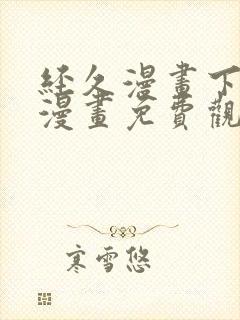 经久漫畫下
漫畫免費觀
寒雪悠